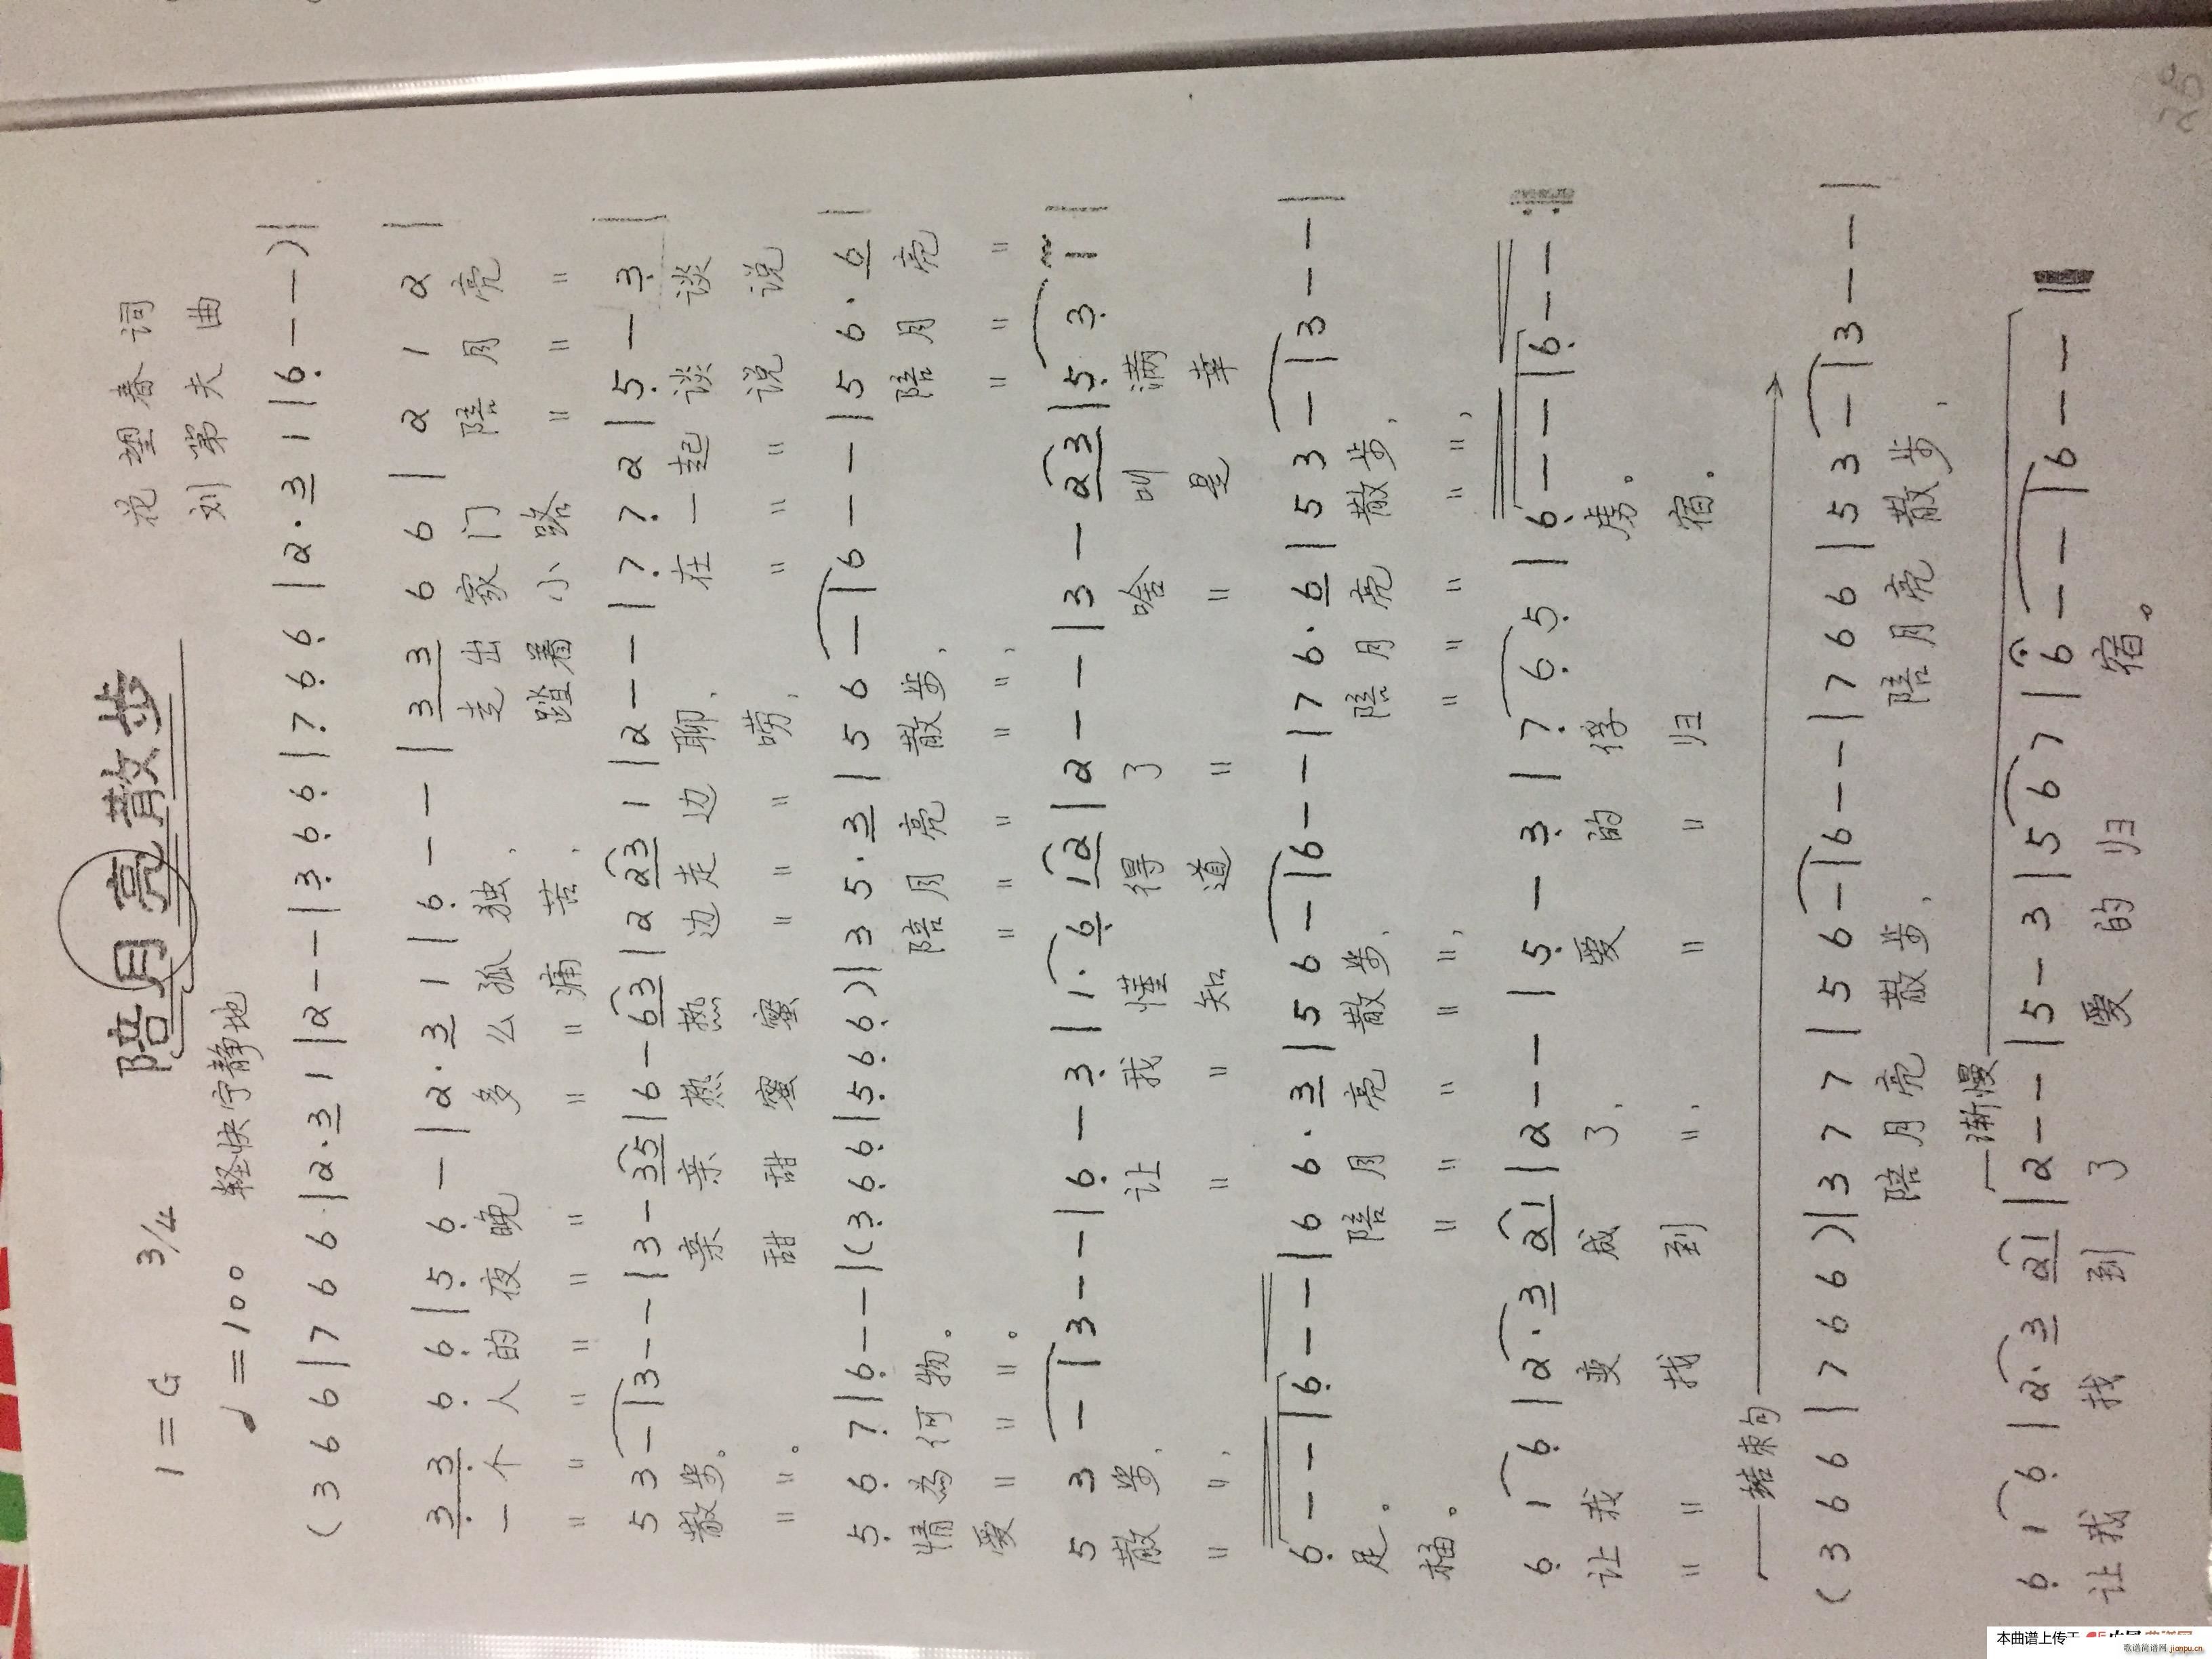 陪月亮散步
1=G 3/4 花塑春 词
♩=100 轻快宁静地 刘第夫 曲
(3 6 6 | 7 6 6 | 2·3 1 | 2 - - | 3̣ 6̣ 6̣ | 7̣ 6̣ 6̣ | 2·3 1 | 6̣ - - ) |
3̣ 3̣ 6̣ 6̣ | 5̣ 6̣ - | 2·3 1 | 6̣ - - | 3 3 6 6 | 2 1 2 |
一个人的夜晚 多么孤独, 走出家门 陪月亮
" " " " " " " " 痛苦, 踏着小路 " " "
5 3 - | 3 - - | 3 - 3 5 | 6 - 6 3 | 2 2 3 1 | 2 - - | 7̣ 7̣ 2 | 5̣ - 3̣ |
散步。 亲亲热热 边走边聊, 在一起谈谈
" "。 甜甜蜜蜜 " " " 唠, " " " 说说
5̣ 6̣ 7̣ | 6̣ - - | (3̣ 6̣ 6̣ | 5̣ 6̣ 6̣) | 3 5·3 | 5 6 - | 6 - - | 5 6·6 |
情為何物。 陪月亮散步, 陪月亮
爱 " " "。 " " " " ", " " "
5 3 - | 3 - - | 6̣ - 3̣ | 1·6̣ 1 2 | 2 - - | 3 - 2 3 | 5̣ 3̣ 1 |
散步, 让我懂得了 啥叫满
" ", " " 知道 " " 是幸
6̣ - - | 6̣ - - | 6 6·3 | 5 6 - | 6 - - | 7 6·6 | 5 3 - | 3 - - |
足。 陪月亮散步, 陪月亮散步,
福。 " " " " ", " " " " ",
6̣ 1 6̣ | 2·3 2 1 | 2 - - | 5̣ - 3̣ | 7̣ 6̣ 5̣ | 6̣ - - | 6̣ - - :‖
让我变成了, 爱的俘虏。
" " 找到 ", " " 归宿。
结束句
(3 6 6 | 7 6 6) | 3 7 7 | 5 6 - | 6 - - | 7 6 6 | 5 3 - | 3 - - |
陪月亮散步, 陪月亮散步,
渐慢
6̣ 1 6̣ | 2·3 2 1 | 2 - - | 5 - 3 | 5 6 7 | 6 - - | 6 - - ‖
让我找到了 爱的归宿。
本曲谱上传于
歌谱简谱网 jianpu.cn